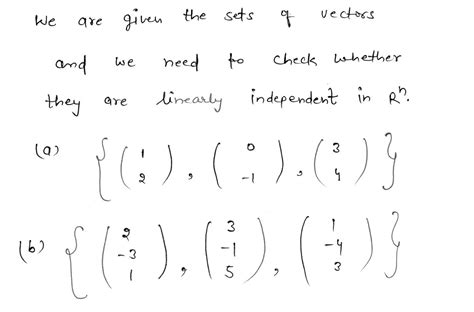 We are given the sets of vectors
and we need to check whether
they are linearly independent in Rⁿ.
(a) {(1 2), (0 -1), (3 4)}
(b) {(2 -3 1), (3 -1 5), (1 -4 3)}